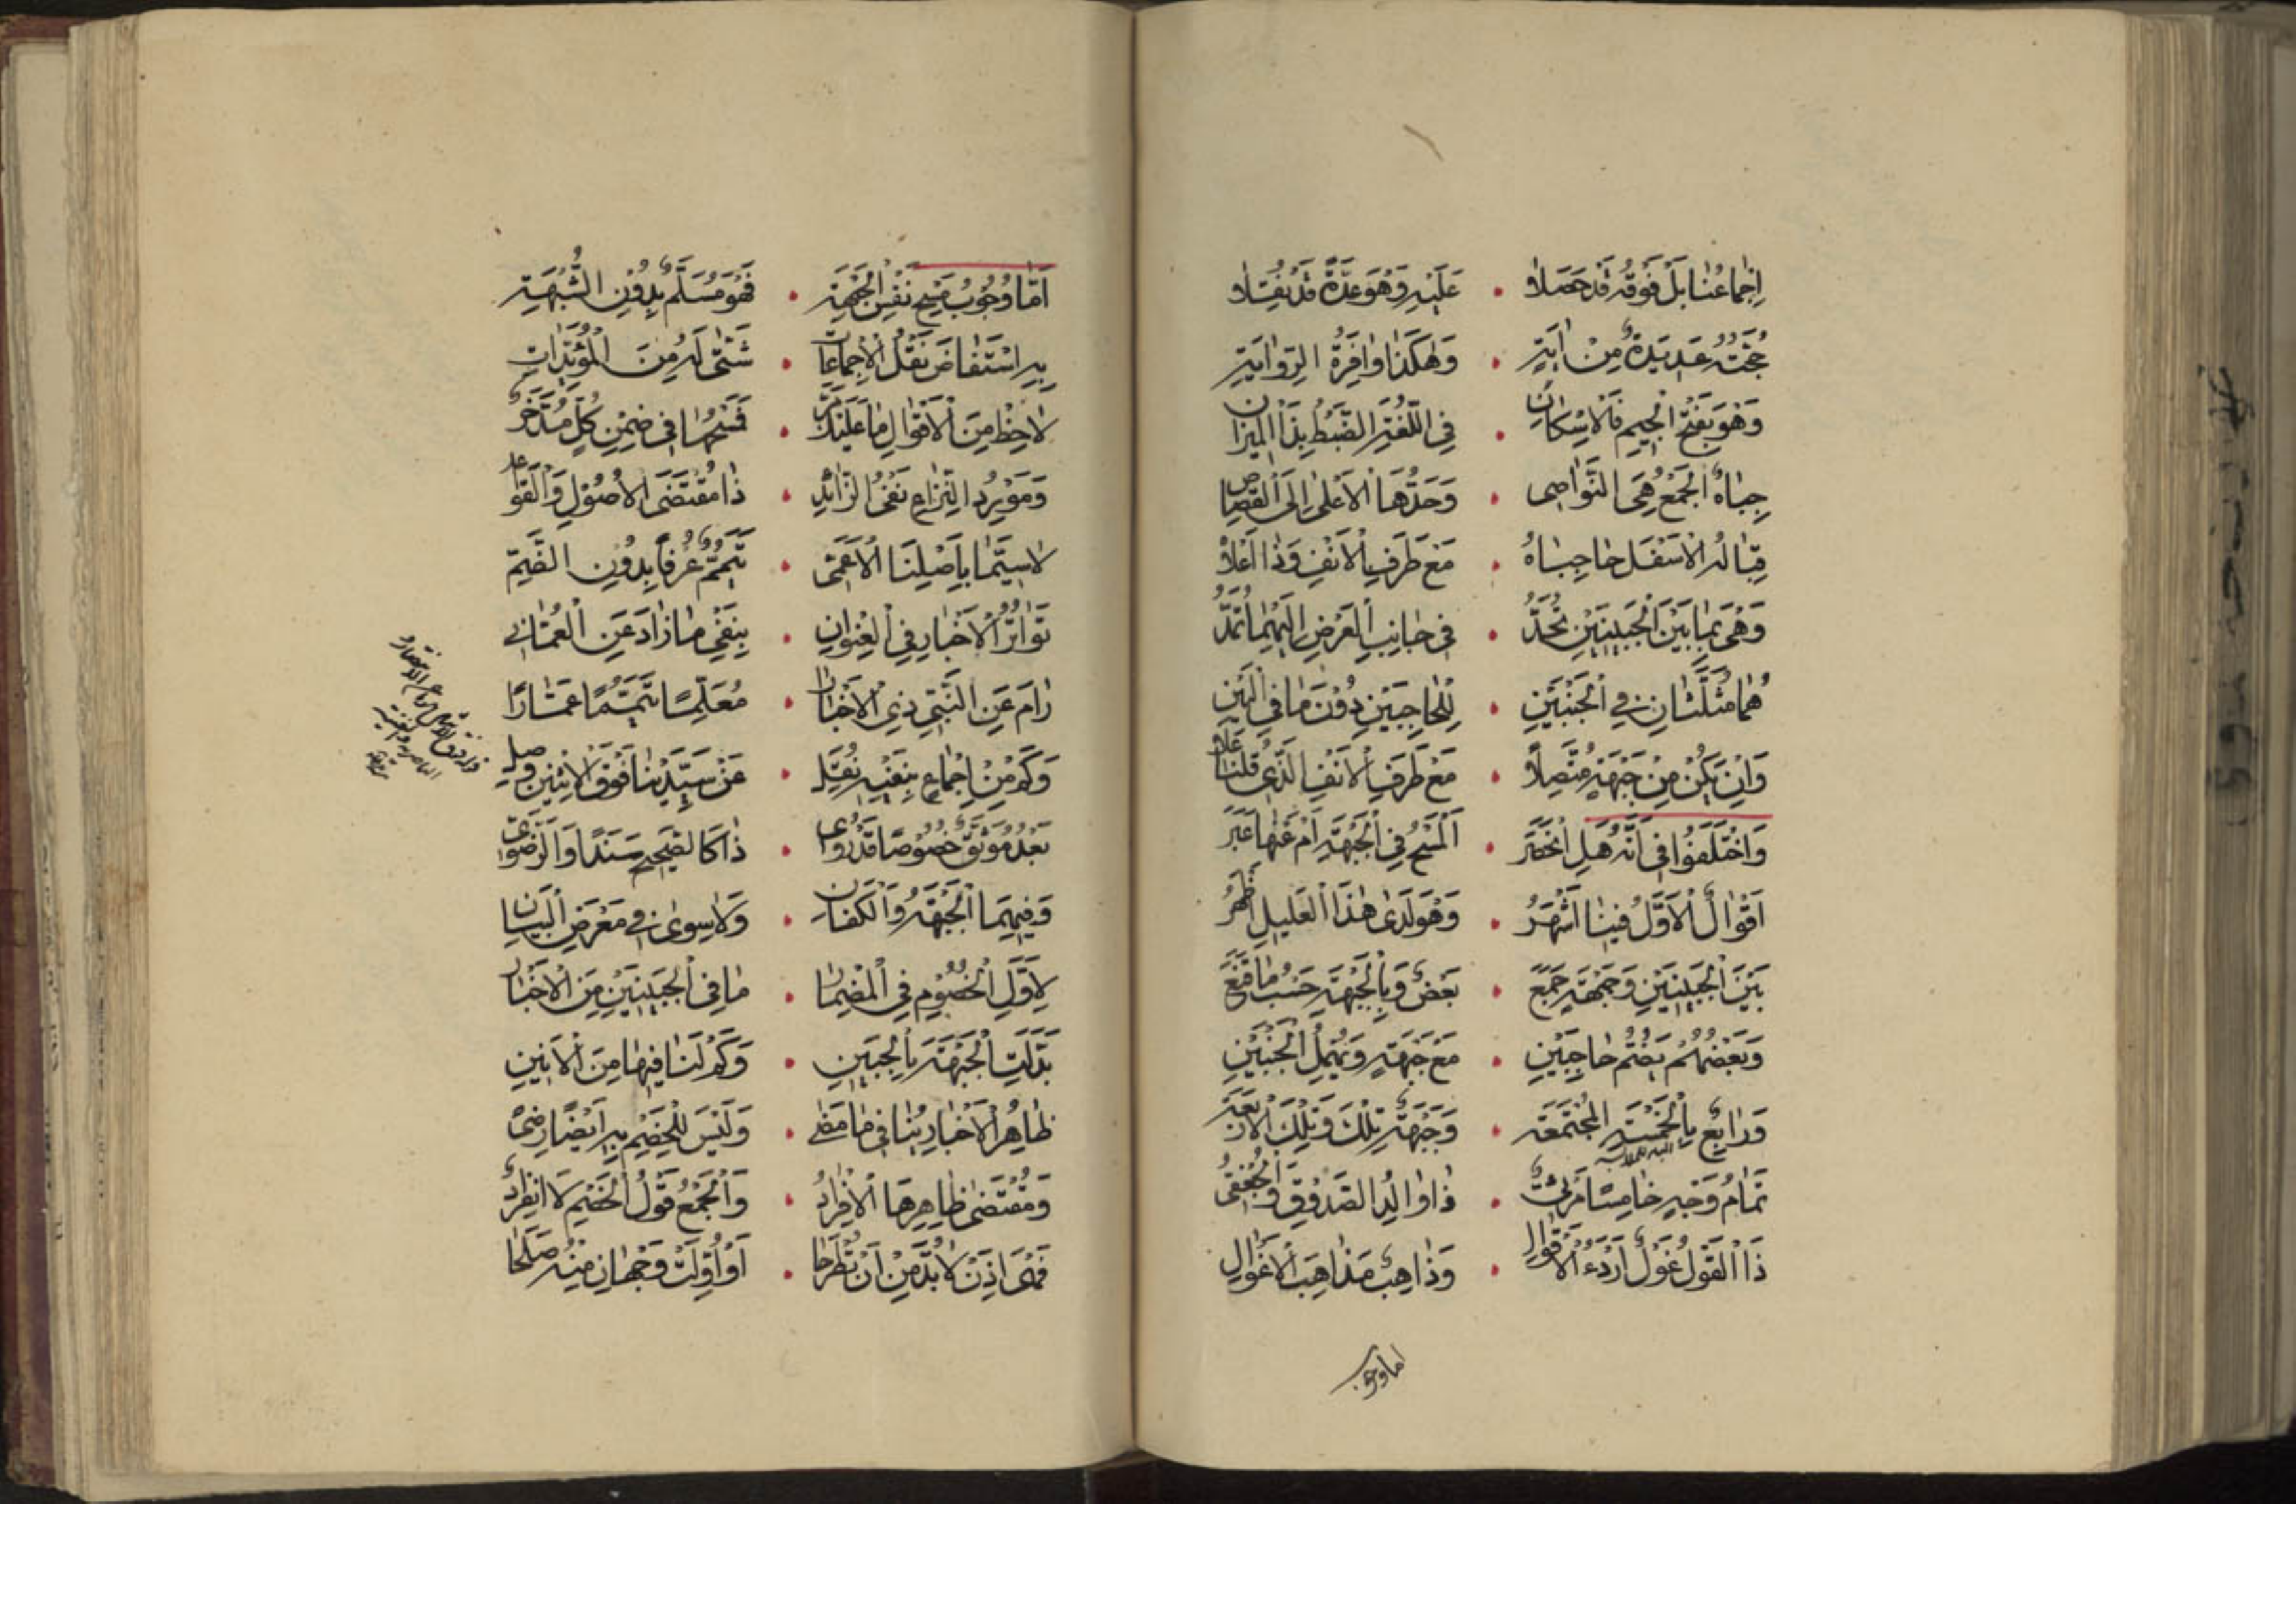 إِجْمَاعُنَا بَلْ فَوْقَهُ قَدْ حَصَلَا • عَلَيْهِ وَهْوَ عِدَّةً قَدْ نُقِلَا
حُجَّتُهُ عَدِيدَةٌ مِنْ آيَةِ • وَهٰكَذَا وَافِرَةُ الرِّوَايَةِ
وَهْوَ بِفَتْحِ الْجِيمِ فَالْإِسْكَانِ • فِي اللُّغَةِ الضَّبْطُ بِذَا الْمِيزَانِ
جِبَاهٌ الْجَمْعُ هِيَ النَّوَاصِي • وَحَدُّهَا الْأَعْلَى إِلَى الْقِصَاصِ
قِبَالُهُ الْأَسْفَلُ حَاجِبَاهُ • مَعْ طَرَفِ الْأَنْفِ وَذَا أَعْلَاهُ
وَهْيَ بِمَا بَيْنَ الْجَبِينَيْنِ تُحَدُّ • فِي جَانِبِ الْعَرْضِ إِلَيْهِمَا تُمَدُّ
هُمَا مُثَلَّثَانِ فِي الْجَنْبَيْنِ • لِلْحَاجِبَيْنِ دُونَ مَا فِي الْبَيْنِ
وَإِنْ يَكُنْ مِنْ جَبْهَةٍ مُتَّصِلَا • مَعْ طَرَفِ الْأَنْفِ الَّذِي قُلْنَا عَلَا
وَاخْتَلَفُوا فِي أَنَّهُ هَلِ انْحَصَرَ • اَلْمَسْحُ فِي الْجَبْهَةِ أَمْ عَنْهَا عَبَرَ
أَقْوَالٌ الْأَوَّلُ فِينَا أَشْهَرُ • وَهْوَ لَدَى هٰذَا الْعَلِيلِ أَظْهَرُ
بَيْنَ الْجَبِينَيْنِ وَجَبْهَةٍ جَمَعَ • بَعْضٌ وَبِالْجَبْهَةِ حَسْبُ مَا قَنَعَ
وَبَعْضُهُمْ يَضُمُّ حَاجِبَيْنِ • مَعْ جَبْهَةٍ وَيُهْمِلُ الْجَنْبَيْنِ
وَرَابِعٌ بِالْخَمْسَةِ الْمُجْتَمِعَةِ • وَجَبْهَةٌ تِلْكَ وَتِلْكَ الْأَرْبَعَةُ
تَمَامُ وَجْهٍ خَامِسًا • ذَا وَالِدُ الصَّدُوقِ وَالْجُعْفِيُّ
ذَا الْقَوْلُ غَوْلٌ أَرْدَءُ الْأَقْوَالِ • وَذَاهِبٌ مَذَاهِبَ الْأَغْوَالِ
اما وجوب
أَمَّا وُجُوبُ مَسْحِ نَفْسِ الْجَبْهَةِ • فَهْوَ مُسَلَّمٌ بِدُونِ الشُّبْهَةِ
بِهِ اسْتَفَاضَ نَقْلُ الْإِجْمَاعَاتِ • شَتَّى لَهُ مِنَ الْمُؤَيِّدَاتِ
لَاحِظْ مِنَ الْأَقْوَالِ مَا عَلَيْكَ مَرَّ • فَمَسْحُهَا فِي ضِمْنِ كُلٍّ مُدَّخَرٌ
وَمَوْرِدُ النِّزَاعِ نَفْيُ الزَّائِدِ • ذَا مُقْتَضَى الْأُصُولِ وَالْقَوَاعِدِ
لَا سِيَّمَا بِأَصْلِنَا الْأَعَمِّ • تَيَمُّمٌ عُرْفًا بِدُونِ الضَّمِّ
تَوَاتُرُ الْأَخْبَارِ فِي الْعُنْوَانِ • بِنَفْيِ مَا زَادَ عَنِ الْعُمَّانِي
رَامَ عَنِ النَّبِيِّ ذِي الْأَخْبَارِ • مُعَلِّمًا تَيَمُّمًا عَمَّارًا
وَكَمْ مِنْ إِجْمَاعٍ بِنَفْيِهِ نُقِلَ • عَنْ سَيِّدَيْنَا فَوْقَ الْاِثْنَيْنِ وَصَلَ
بَعْدُ مُوَثَّقٌ خُصُوصًا قَدْ رُوِي • ذَا كَالصَّحِيحِ سَنَدًا وَالرَّضَوِيّ
وَفِيهِمَا الْجَبْهَةُ وَالْكَفَّانِ • وَلَا سِوَى فِي مَعْرَضِ الْبَيَانِ
لِأَوَّلِ الْخُصُومِ فِي الْمِضْمَارِ • مَا فِي الْجَبِينَيْنِ مِنَ الْأَخْبَارِ
بَدَّلَتِ الْجَبْهَةَ بِالْجَبِينِ • وَكَمْ لَنَا فِيهَا مِنَ الْأَنِينِ
ظَاهِرُ الْأَخْبَارِ يُنَافِي مَا مَضَى • وَلَيْسَ لِلْخَصْمِ بِهِ أَيْضًا رِضَى
وَمُقْتَضَى ظَاهِرِهَا الْإِفْرَادُ • وَالْجَمْعُ قَوْلُ الْخَصْمِ لَا انْفِرَادُ
فَهْيَ إِذَنْ لَا بُدَّ مِنْ أَنْ تُطْرَحَا • أَوْ أُوِّلَتْ وَجْهَانِ مِنْهُ صَلَحَا